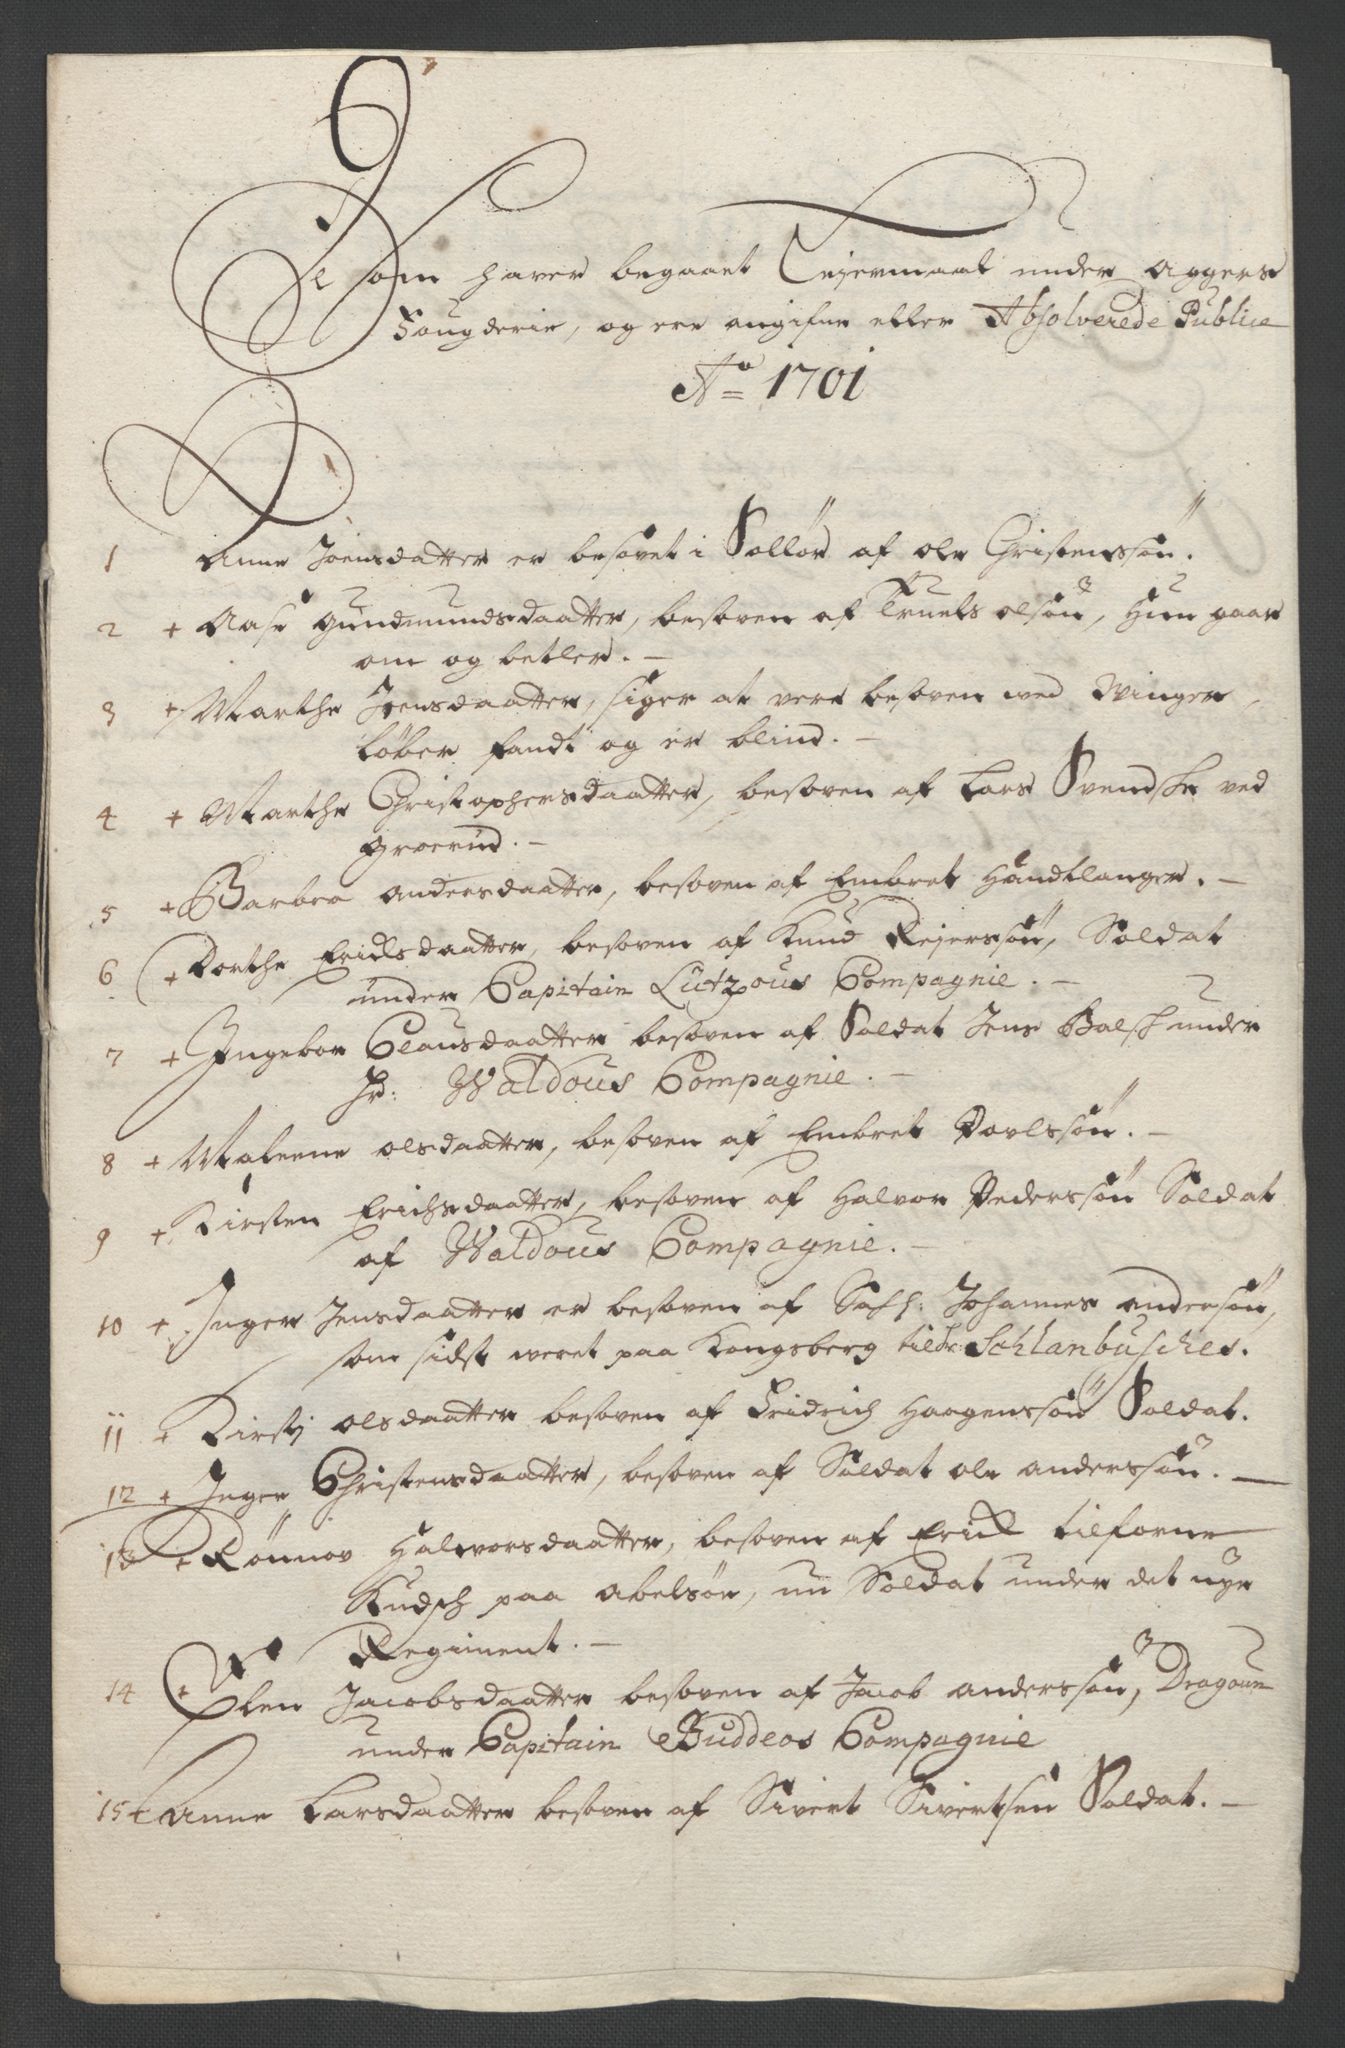 De som hafver begaaet Leyermaal under Aggers
Fougderie, og ere angifne eller Absolverede Publice
Ao = 1701
1 Anne Joensdatter er besovet i Sollør af ole Christenssøn.
2 + Aase Gundmundsdaatter, besoven af Truels olsøn, Hun gaar
om og betler. -
3 + Marthe Jensdaatter, siger at vere besoven ved Winger,
løber fandt og er blind. -
4 + Marthe Christophersdaatter, besoven af Lars Svendske ved
Groerud. -
5 + Barbra Andersdaatter, besoven af Embret Handtlanger. -
6 + Dorthe Erichsdaatter, besoven af Knud Rejerssøn, Soldat
under Capitain Lützous Compagnie. -
7 + Ingebor Clausdaatter besoven af Soldat Jens Balsch under
Hr: Waldous Compagnie. -
8 + Maleene olsdaatter, besoven af Embret Povlssøn. -
9 + Kirsten Erichsdaatter, besoven af Halvor Pederssøn Soldat
af Waldous Compagnie. -
10 + Inger Jensdaatter er besoven af Johannes Andersøn,
som sidst weret paa Kongsberg Schlanbusches.
11 + Kirsti olsdaatter besoven af Fridrich Haagenssøn Soldat.
12 + Inger Christensdaatter, besoven af Soldat ole anderssøn. -
13 + Rønnov Halworsdaatter, besoven af Erich tilforne
Kudsch paa Abelsøe, nu Soldat under det nye
Regiment. -
14 + Elen Jacobsdaatter besoven af Jacob anderssøn, Dragoun
under Capitain Buddeos Compagnie
15 + Anne Larsdaatter besoven af Sivert Sivertsen Soldat. -